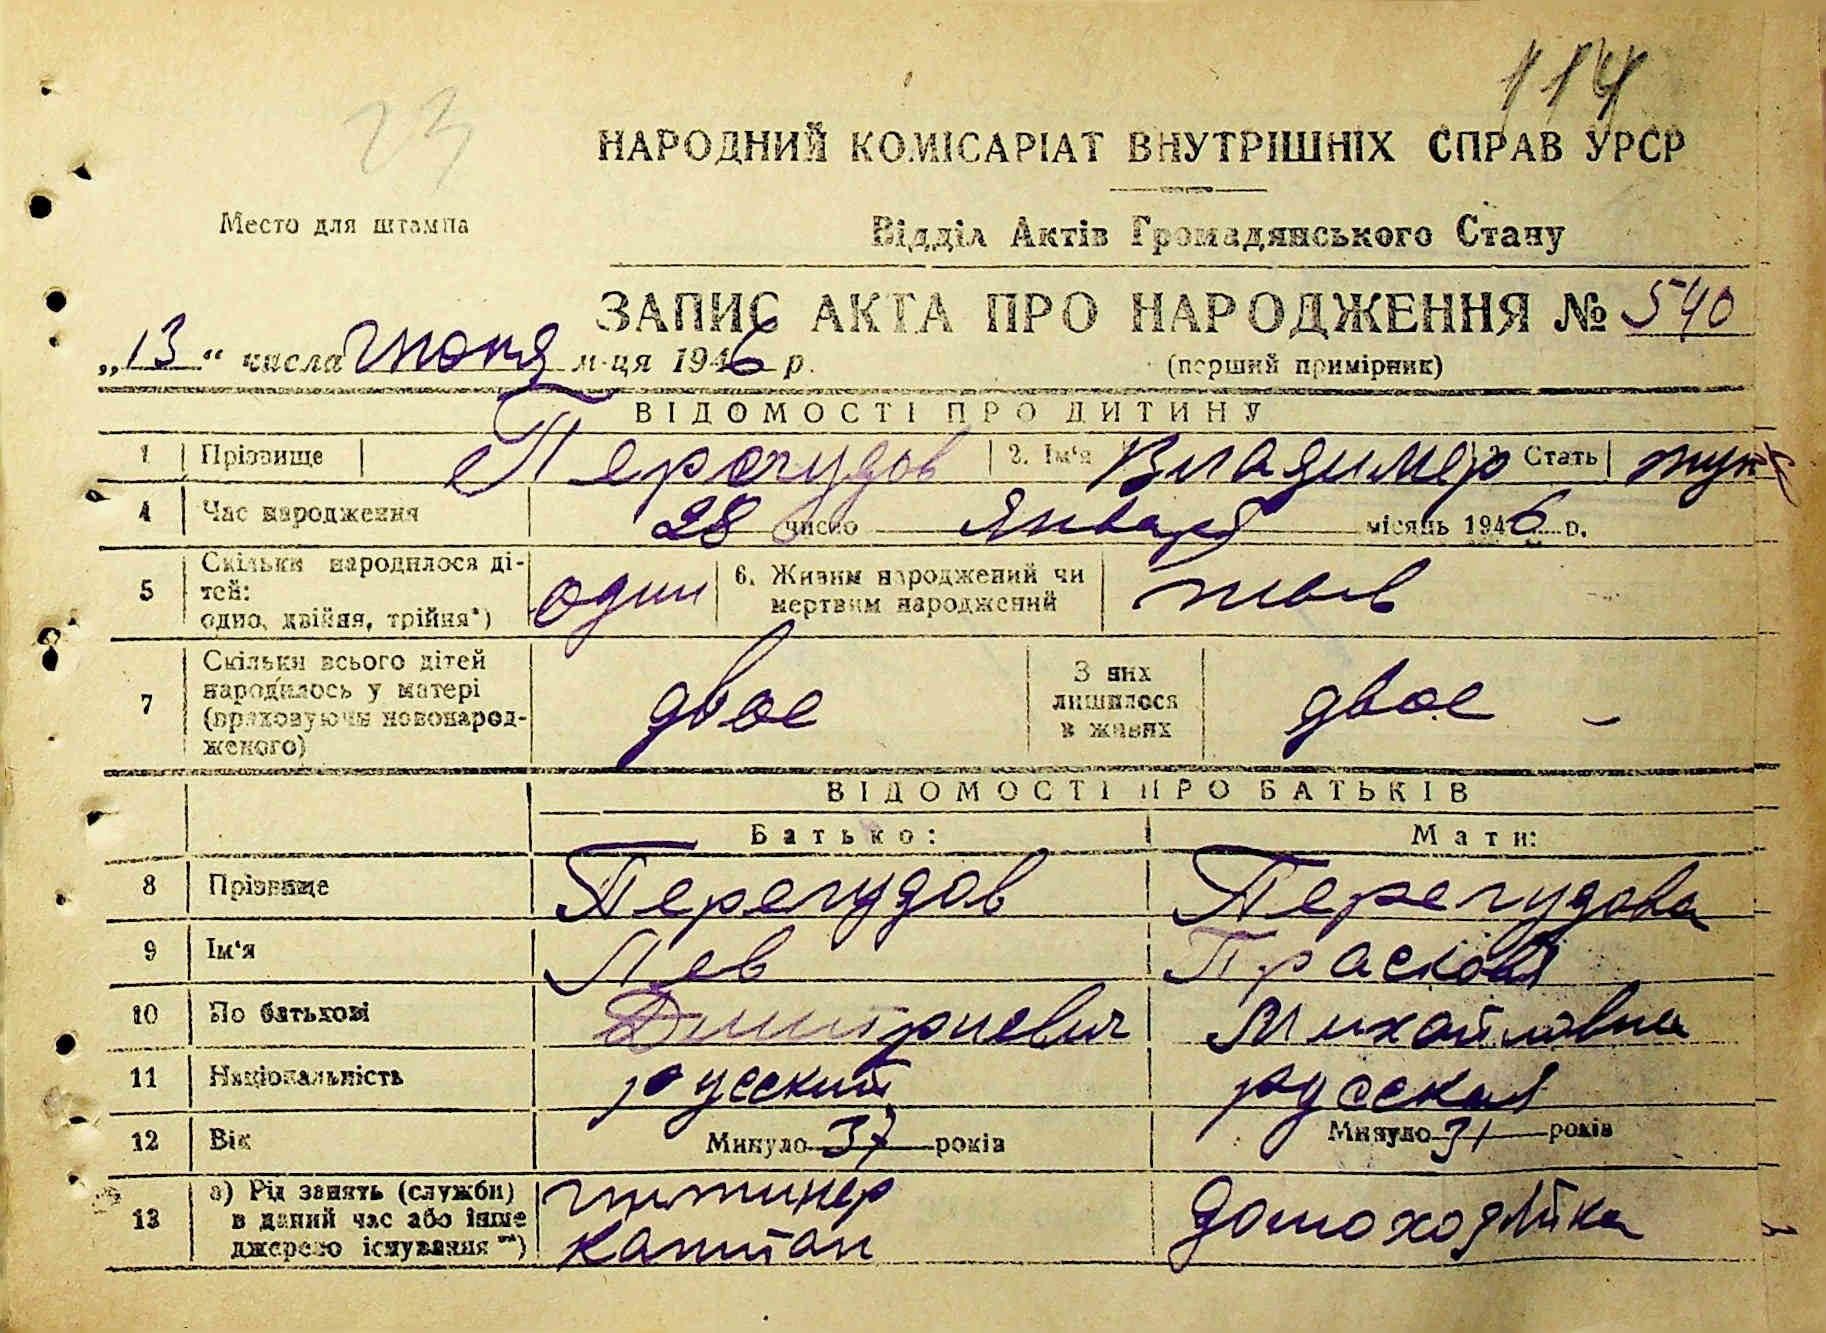 114
23
НАРОДНИЙ КОМІСАРІАТ ВНУТРІШНІХ СПРАВ УРСР
Место для штампа
Відділ Актів Громадянського Стану
ЗАПИС АКТА ПРО НАРОДЖЕННЯ № 540
„13“ числа Июня м-ця 1946 р.
(перший примірник)
ВІДОМОСТІ ПРО ДИТИНУ
1 Прізвище Перегудов 2. Ім‘я Владимер 3. Стать муж
4 Час народження 28 число Января місяць 1946 р.
5 Скільки народилося ді-
тей:
одно, двійня, трійня*) один
6. Живим народжений чи
мертвим народжений жив
7 Скільки всього дітей
народилось у матері
(враховуючи новонарод-
женого) двое
З них
лишилося
в живих двое
ВІДОМОСТІ ПРО БАТЬКІВ
Батько: Мати:
8 Прізвище Перегудов Перегудова
9 Ім‘я Лев Прасковя
10 По батькові Дмитриевич Михайловна
11 Національність русский русская
12 Вік Минуло 37 років Минуло 31 років
13 а) Рід занять (служби)
в даний час або інше
джерело існування**) инжинер
капитан
домохозяйка